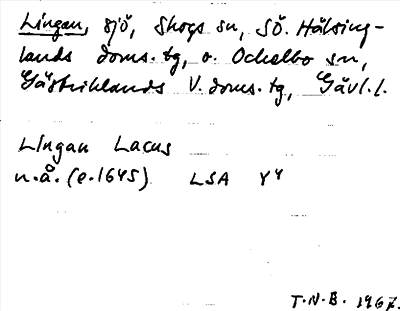 Lingan, sjö, Skogs sn, Sö. Hälsing-
lands doms.tg, o. Ockelbo sn,
Gästriklands V. doms.tg, Gävl.l.
Lingan Lacus
n.å. (e.1645) LSA Y4
T.N.B. 1967.